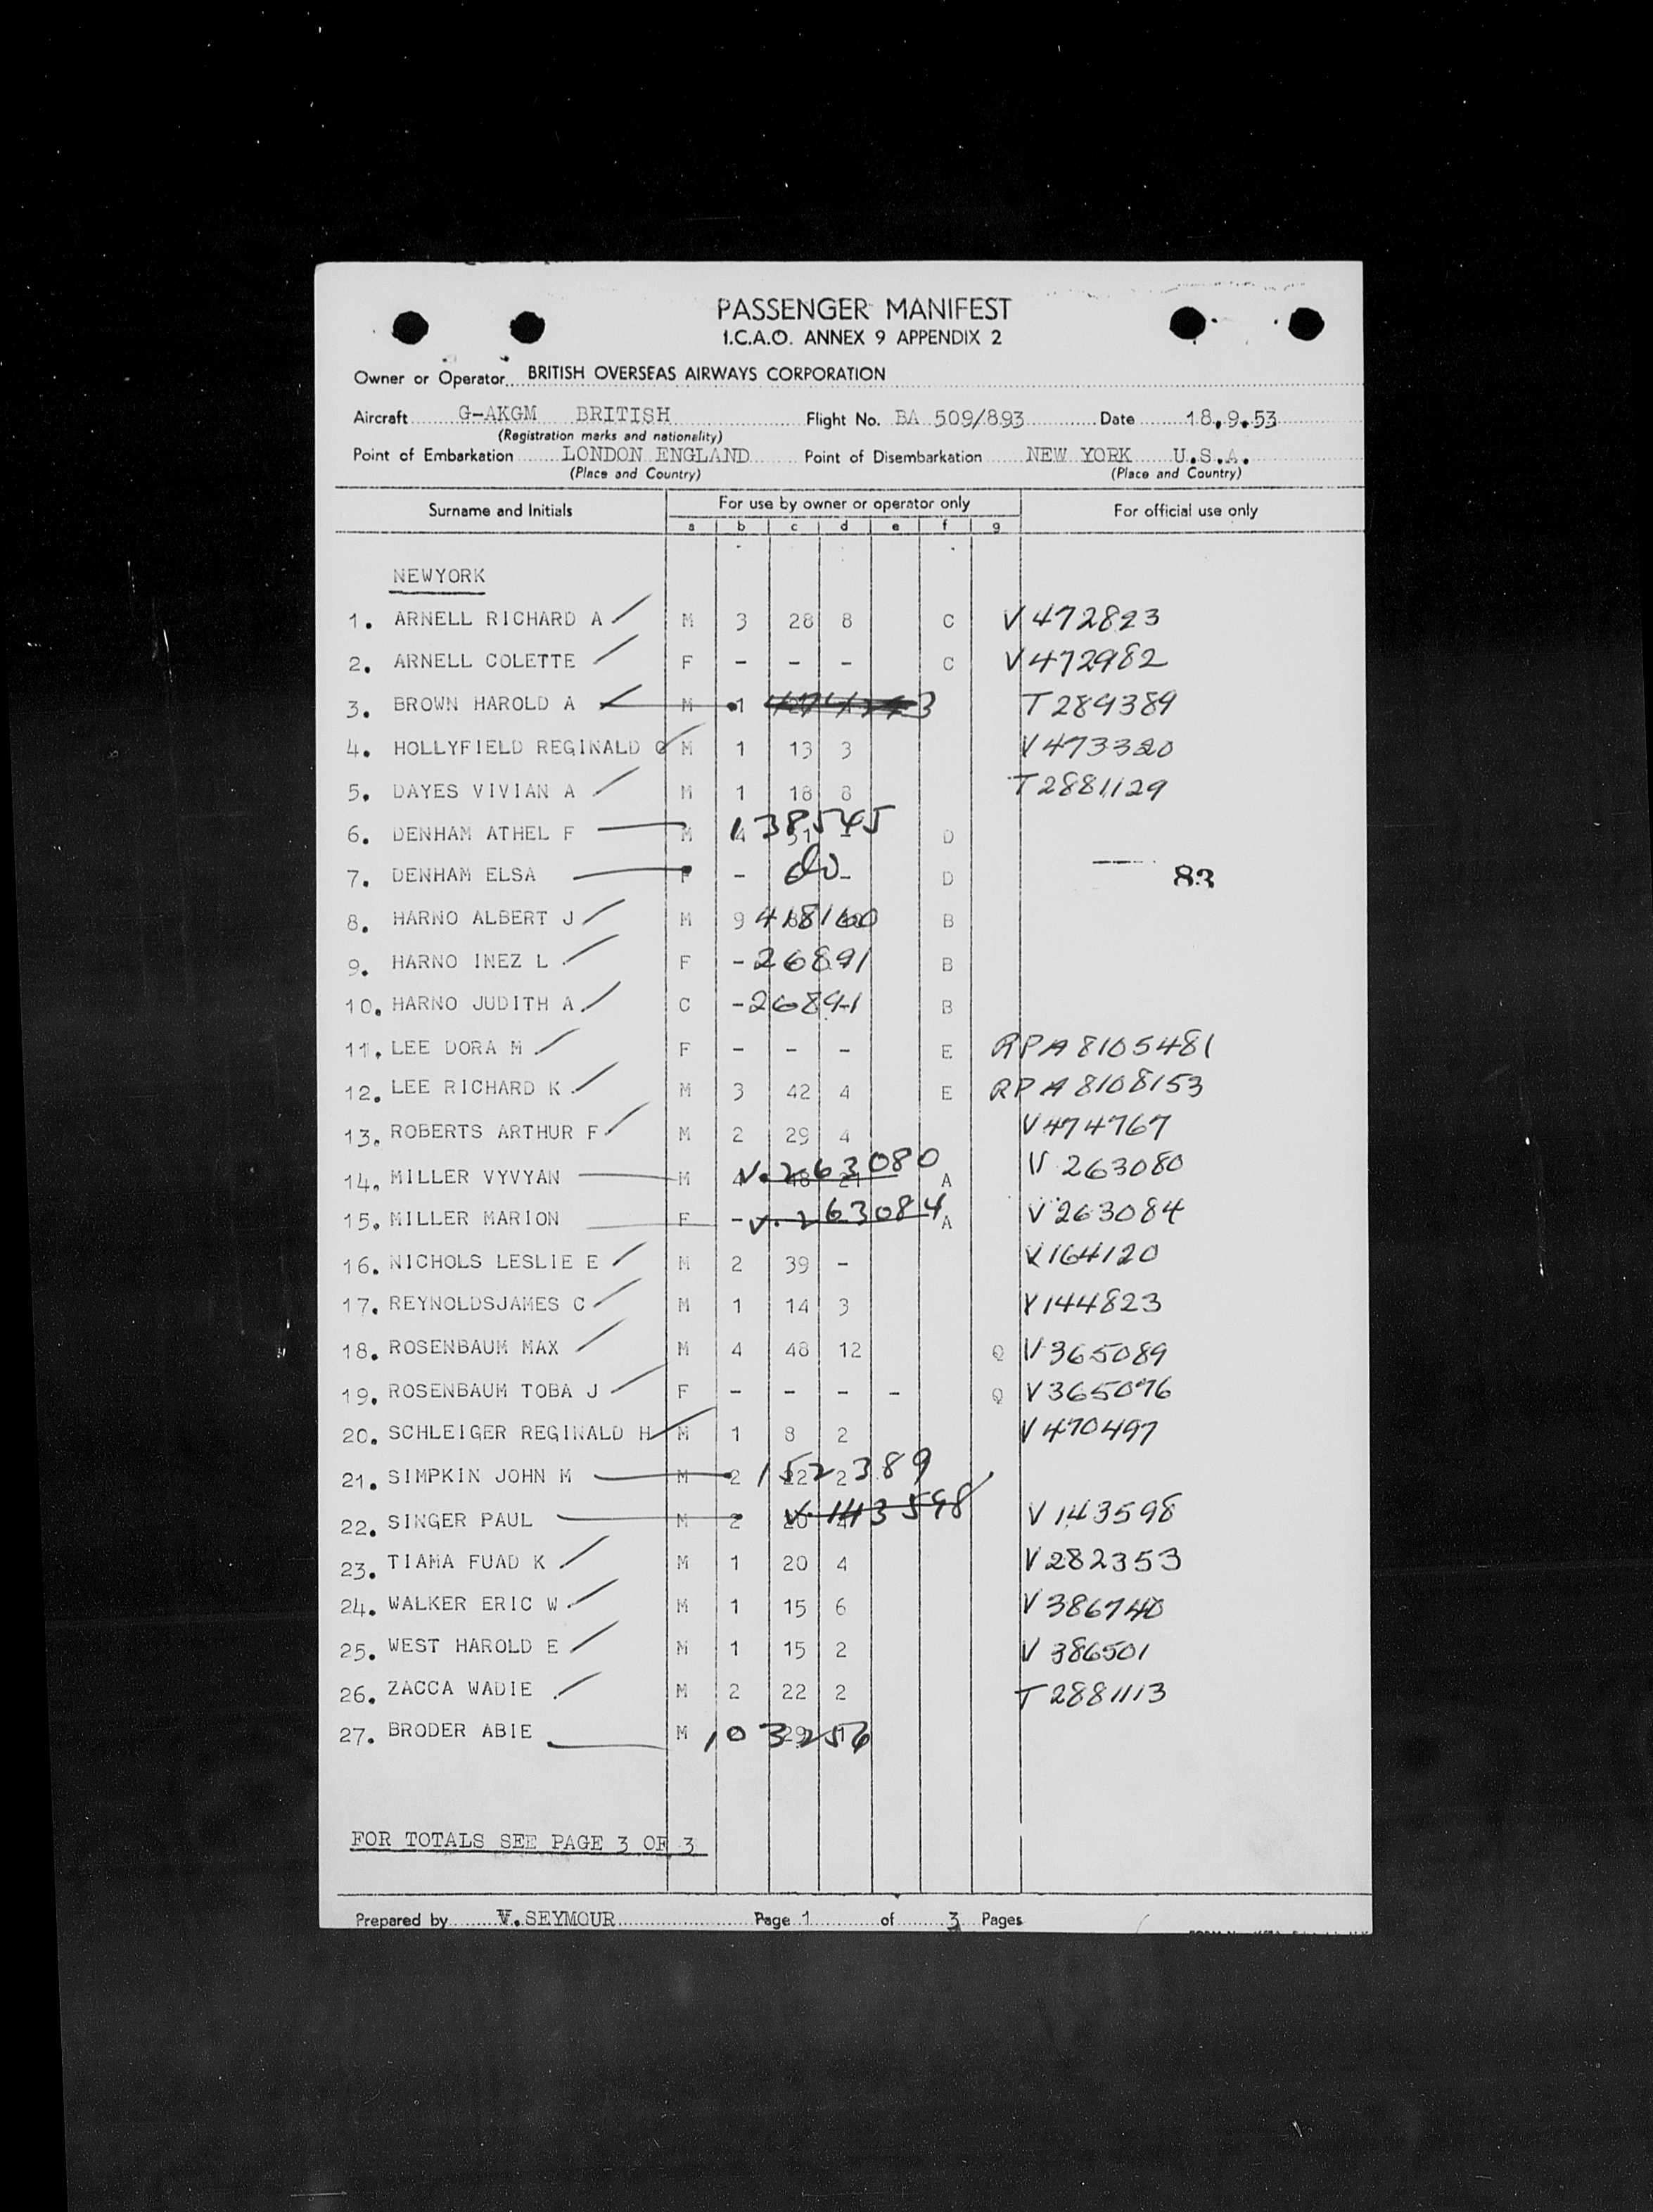 PASSENGER MANIFEST
I.C.A.O. ANNEX 9 APPENDIX 2
Owner or Operator BRITISH OVERSEAS AIRWAYS CORPORATION
Aircraft G-AKGM BRITISH Flight No. BA 509/893 Date 18.9.53
(Registration marks and nationality)
Point of Embarkation LONDON ENGLAND Point of Disembarkation NEW YORK U.S.A.
(Place and Country) (Place and Country)
Surname and Initials For use by owner or operator only For official use only
a b c d e f g
NEWYORK
1. ARNELL RICHARD A M 3 28 8 C V 472823
2. ARNELL COLETTE F - - - C V 472982
3. BROWN HAROLD A M 1 T 289389
4. HOLLYFIELD REGINALD G M 1 13 3 V 473320
5. DAYES VIVIAN A M 1 18 8 T 2881129
6. DENHAM ATHEL F M 4 31 - 138545 D
7. DENHAM ELSA F - do - D 83
8. HARNO ALBERT J M 9 418160 B
9. HARNO INEZ L F - 26891 B
10. HARNO JUDITH A C - 26891 B
11. LEE DORA M F - - - E RPA 8105481
12. LEE RICHARD K M 3 42 4 E RPA 8108153
13. ROBERTS ARTHUR F M 2 29 4 V 474767
14. MILLER VYVYAN M 4 48 21 V. 263080 A V 263080
15. MILLER MARION F - V. 263084 A V 263084
16. NICHOLS LESLIE E M 2 39 - V 164120
17. REYNOLDSJAMES C M 1 14 3 V 144823
18. ROSENBAUM MAX M 4 48 12 Q V 365089
19. ROSENBAUM TOBA J F - - - - Q V 365076
20. SCHLEIGER REGINALD H M 1 8 2 V 470497
21. SIMPKIN JOHN M M 2 22 2 152389
22. SINGER PAUL M 2 20 V. 143598 V 143598
23. TIAMA FUAD K M 1 20 4 V 282353
24. WALKER ERIC W M 1 15 6 V 386740
25. WEST HAROLD E M 1 15 2 V 386501
26. ZACCA WADIE M 2 22 2 T 2881113
27. BRODER ABIE M 29 103256
FOR TOTALS SEE PAGE 3 OF 3
Prepared by V. SEYMOUR Page 1 of 3 Pages